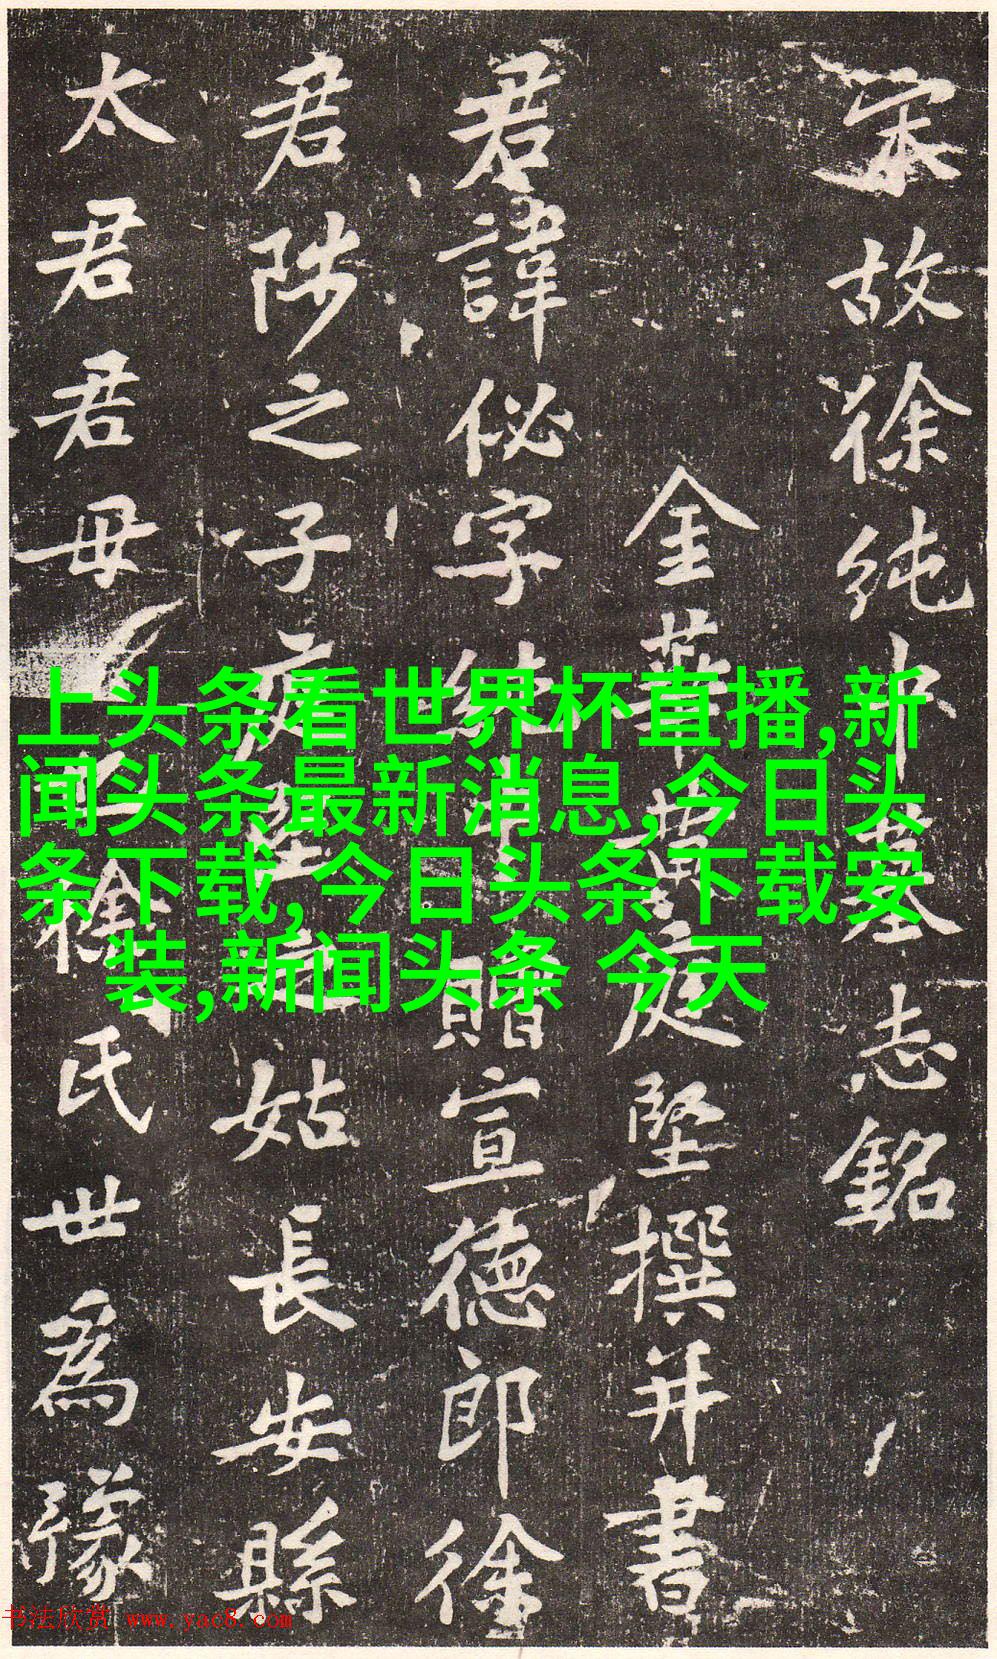 宋故徐純中墓志銘
金華黄庭堅撰并書
君諱佖字贈宣德郎徐
君陟之子姑長安縣
太君君母徐氏世為豫
上头条看世界杯直播,新
闻头条最新消息,今日头
条下载,今日头条下载安
装,新闻头条 今天
书法欣赏 www.yac8.com